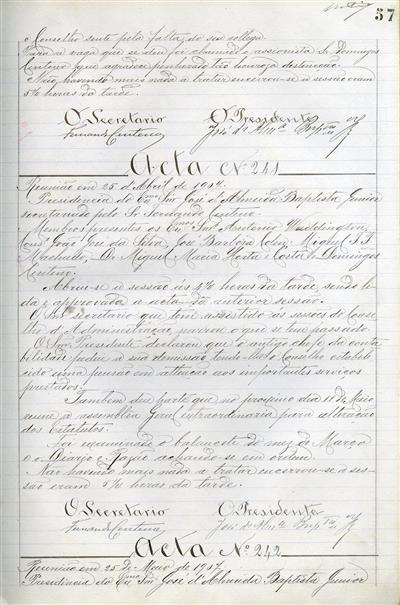 37
o Conselho sente pela falta do seu collega.
Para a vaga que se deu foi chamado o accionista Sr. Domingos
Centeno que agradece penhorado tão honrosa destincção.
Não havendo mais nada a tratar encerrou-se a sessão eram
5½ horas da tarde.
O Secretario O Presidente
Fernando Centeno José d'Almda Baptista Jr
Acta Nº 241
Reunião em 25 d'Abril de 1907.
Presidencia do Exmo Snr José d'Almeida Baptista Junior
secretariado pelo Sr. Fernando Centeno.
Membros presentes os Exmos Snrs Antonio Waddington,
Consº João da Silva, José Barboza Colen, Miguel
Machado, Dr. Miguel Maria Horta e Costa e Domingos
Centeno.
Abriu-se a sessão ás 4½ horas da tarde, sendo li-
da e approvada a acta da anterior sessão.
O Snr secretario que tem assistido ás sessões do Conse-
lho d'Administração, narrou o que se tem passado.
O Snr Presidente declarou que o antigo chefe da conta-
bilidade pediu a sua demissão tendo-lhe o Conselho estabele-
cido uma pensão em attenção aos importantes serviços
prestados.
Tambem deu parte que no proximo dia 11 de Maio
reune a assembleia geral extraordinaria para alteração
dos Estatutos.
Foi examinado o balancete do mez de Março
e o Diario e Razão achando-se em ordem.
Não havendo mais nada a tratar encerrou-se a ses-
são eram 5½ horas da tarde.
O Secretario O Presidente
Fernando Centeno José d'Almda Baptista Jr
Acta Nº 242
Reunião em 25 de Maio de 1907.
Presidencia do Exmo Snr José d'Almeida Baptista Junior